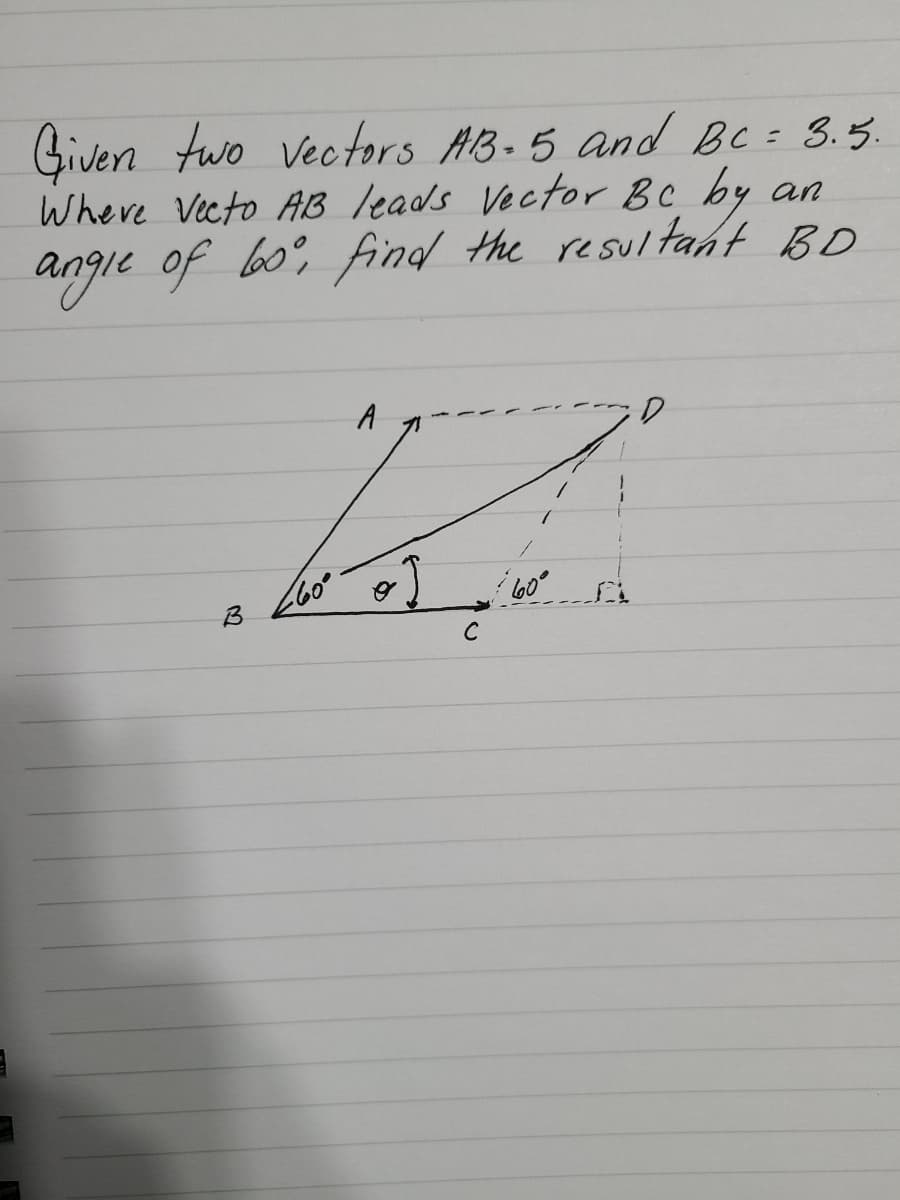 Given two Vectors AB = 5 and BC = 3.5.
Where Vecto AB leads Vector BC by an
angle of 60°, find the resultant BD
A D
60° θ 60°
B C